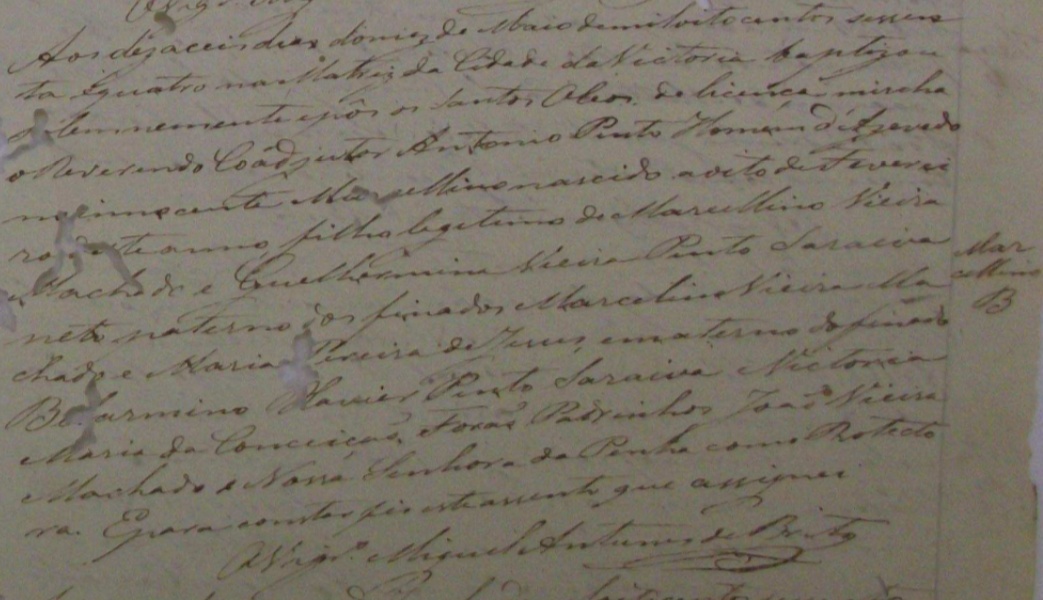 Aos dezaceis dias do mez de Maio de mil oito centos sessen
ta e quatro na Matriz da Cidade da Victoria baptizou
solemnemente e pôs os Santos Oleos de licença minha
o Reverendo Coadjutor Antonio Pinto Homem d'Azevedo
ao innocente Marcellino nascido a oito de Feverei
ro deste anno, filho legitimo de Marcellino Vieira
Machado e Guelhermina Vieira Pinto Saraiva
neto paterno dos finados Marcelino Vieira Ma
chado e Maria Pereira de Jesus, e materno do finado
Belarmino Xavier Pinto Saraiva Victoria
Maria da Conceição. Forão Padrinhos João Vieira
Machado e Nossa Senhora da Penha como Protecto
ra. E para constar fis este assento que assignei
O Vigrº Miguel Antunes de Brito
Mar
cellino
B